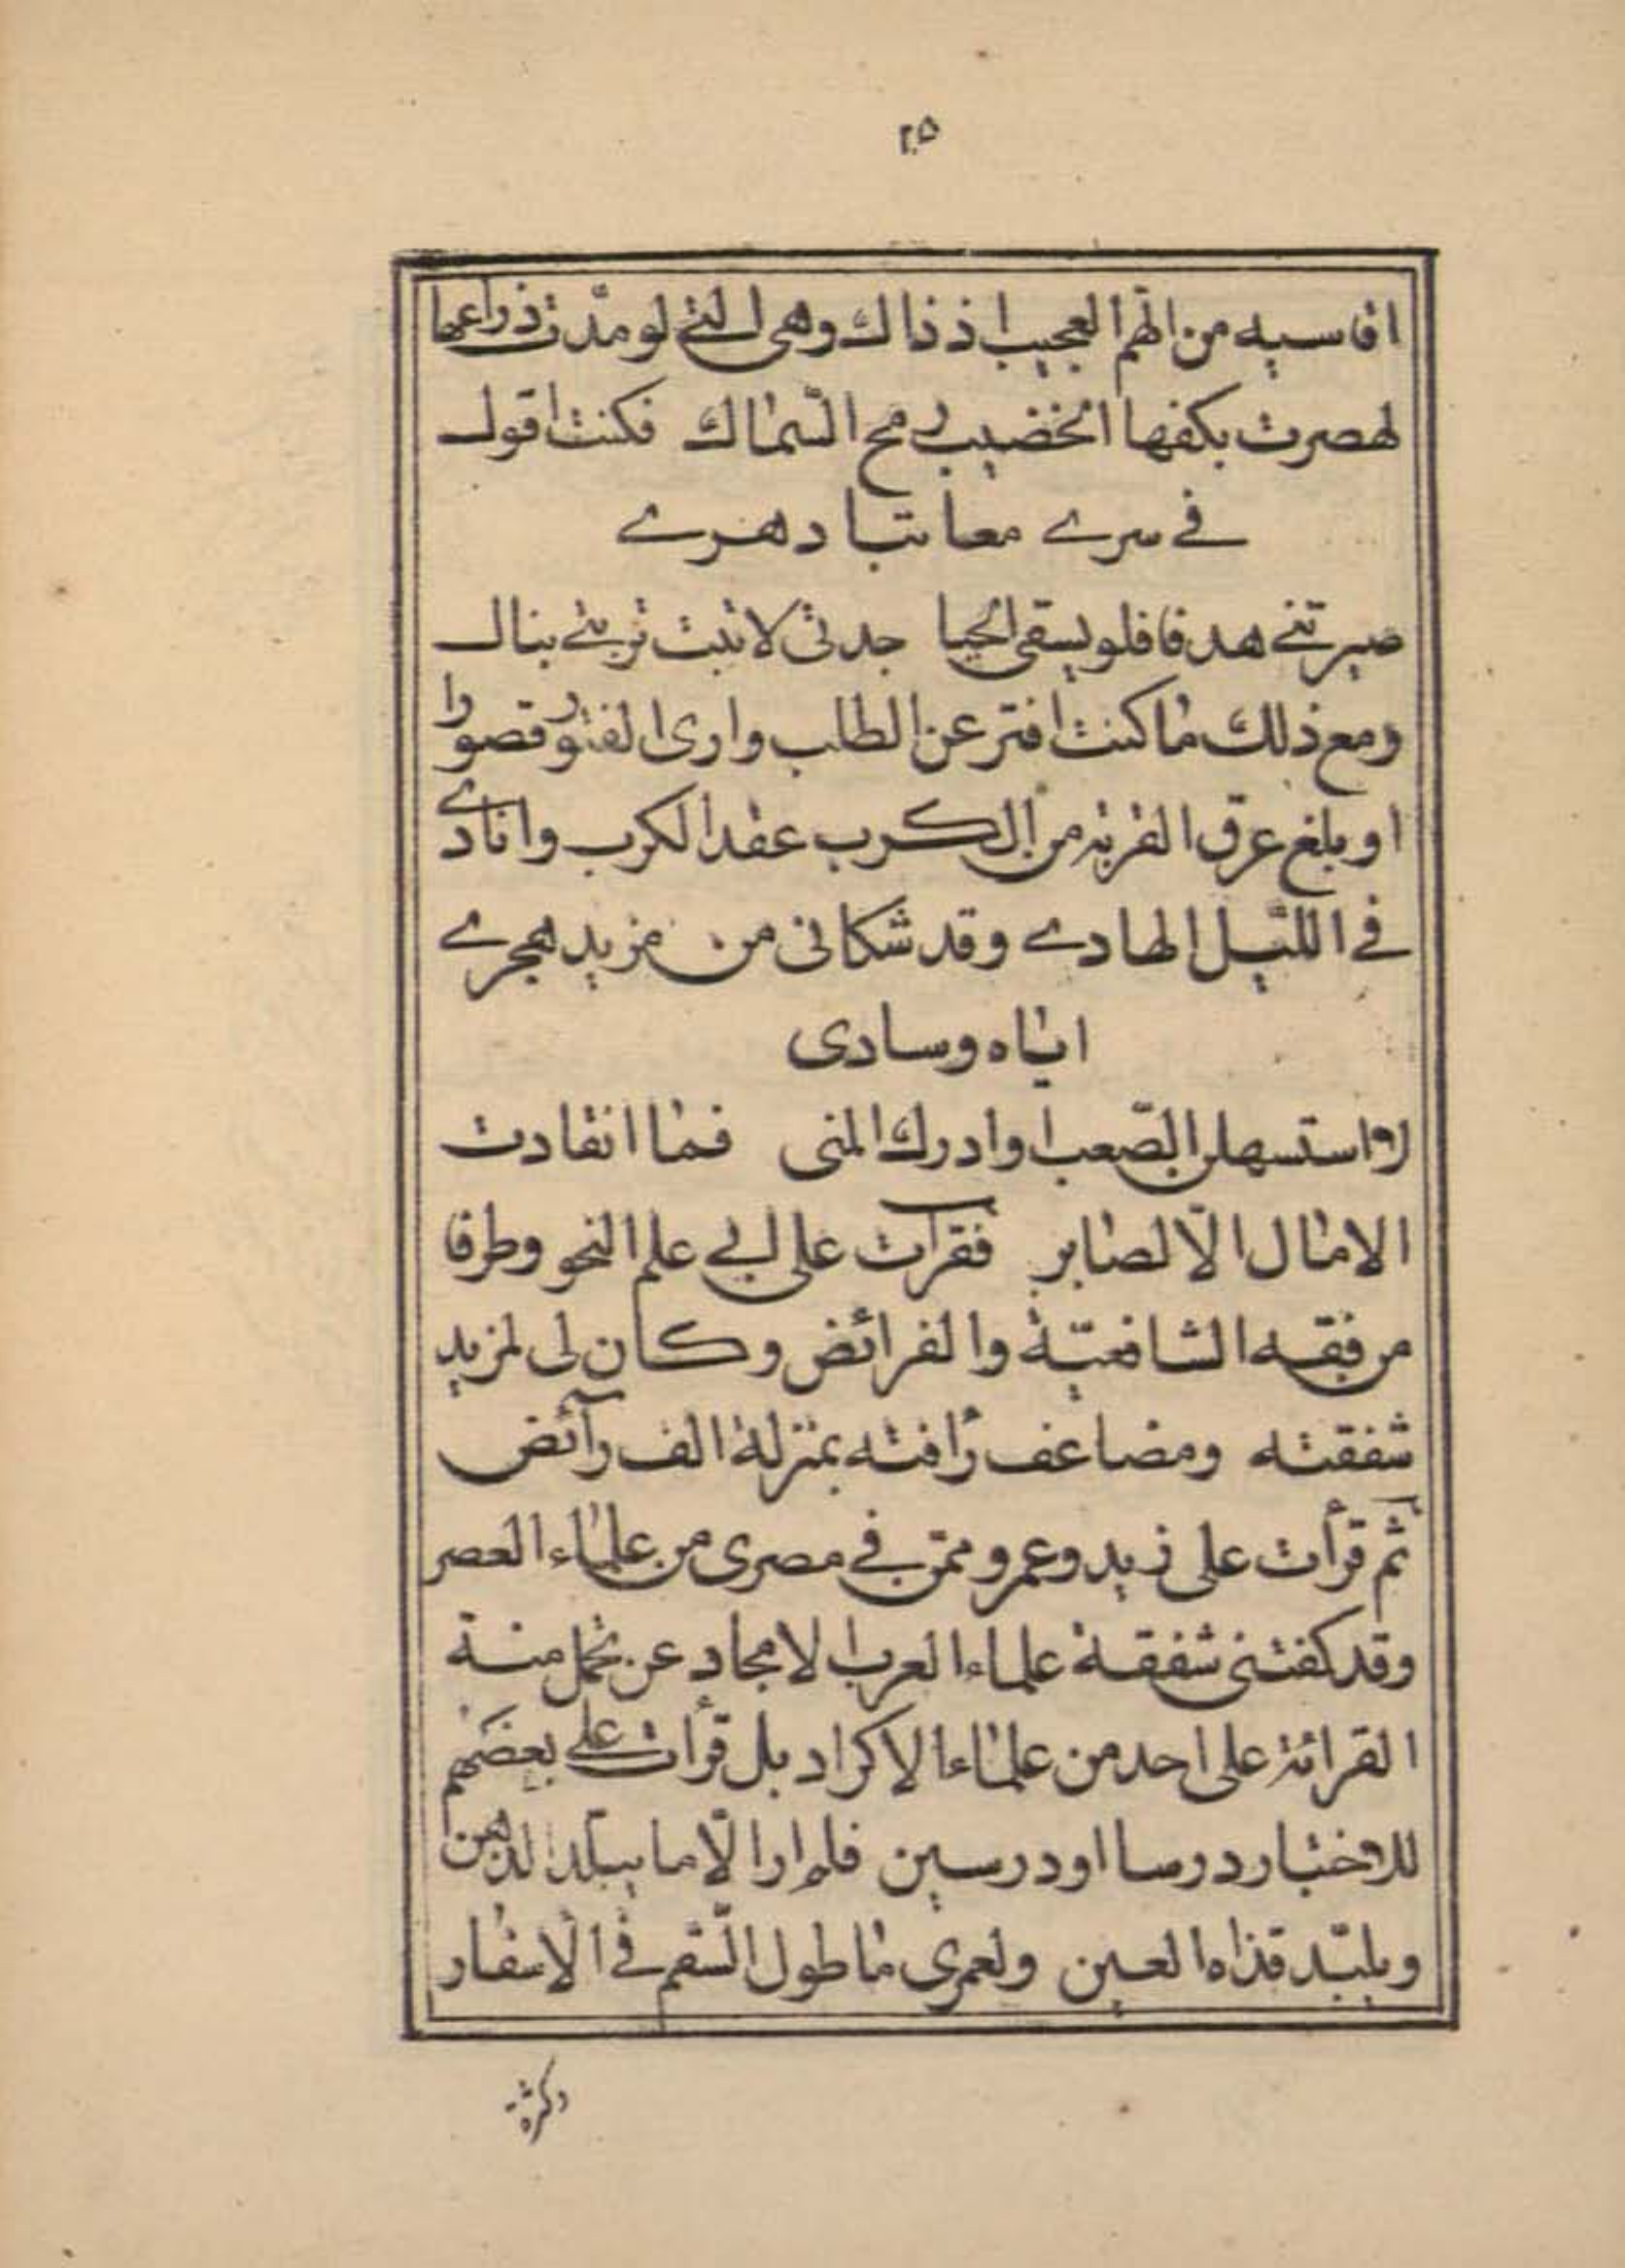 ٢٥
اقاسيه من الهم العجيب اذ ذاك وهى التے لو مدّت ذراعها
لهصرت بكفها الخضيب رمح السّماك فكنت اقول
فے سرے معاتبا دهرے
صيرتنے هدفا فلو يسقى الحيا جدثى لانبتت تربتے بنبال
ومع ذلك ما كنت افتر عن الطلب وارى الفتور قصورا
او يبلغ عرق القربة من الكرب عقد الكرب وانادے
فے الليل الهادے وقد شكانى من مزيد هجرے
اياه وسادى
لاستسهلن الصّعب او ادرك المنى فما انقادت
الامال الّا لصابر فقرات على ابے علم النحو وطرفا
من فقه الشافعيّة والفرائض وكان لى لمزيد
شفقته ومضاعف رأفته بمنزلة الف رآئض
ثم قرأت على زيد وعمرو ممّن فے مصرى من علماء العصر
وقد كفتنى شفقة علماء العرب الامجاد عن تحمل منة
القرائة على احد من علماء الاكراد بل قرأت علے بعضهم
للاختبار درسا او درسين فلم ار الّا ما يبلّد الذهن
ويلبّد قذاه العين ولعمرى ما طول السّقم فے الاسفار
وكثرة